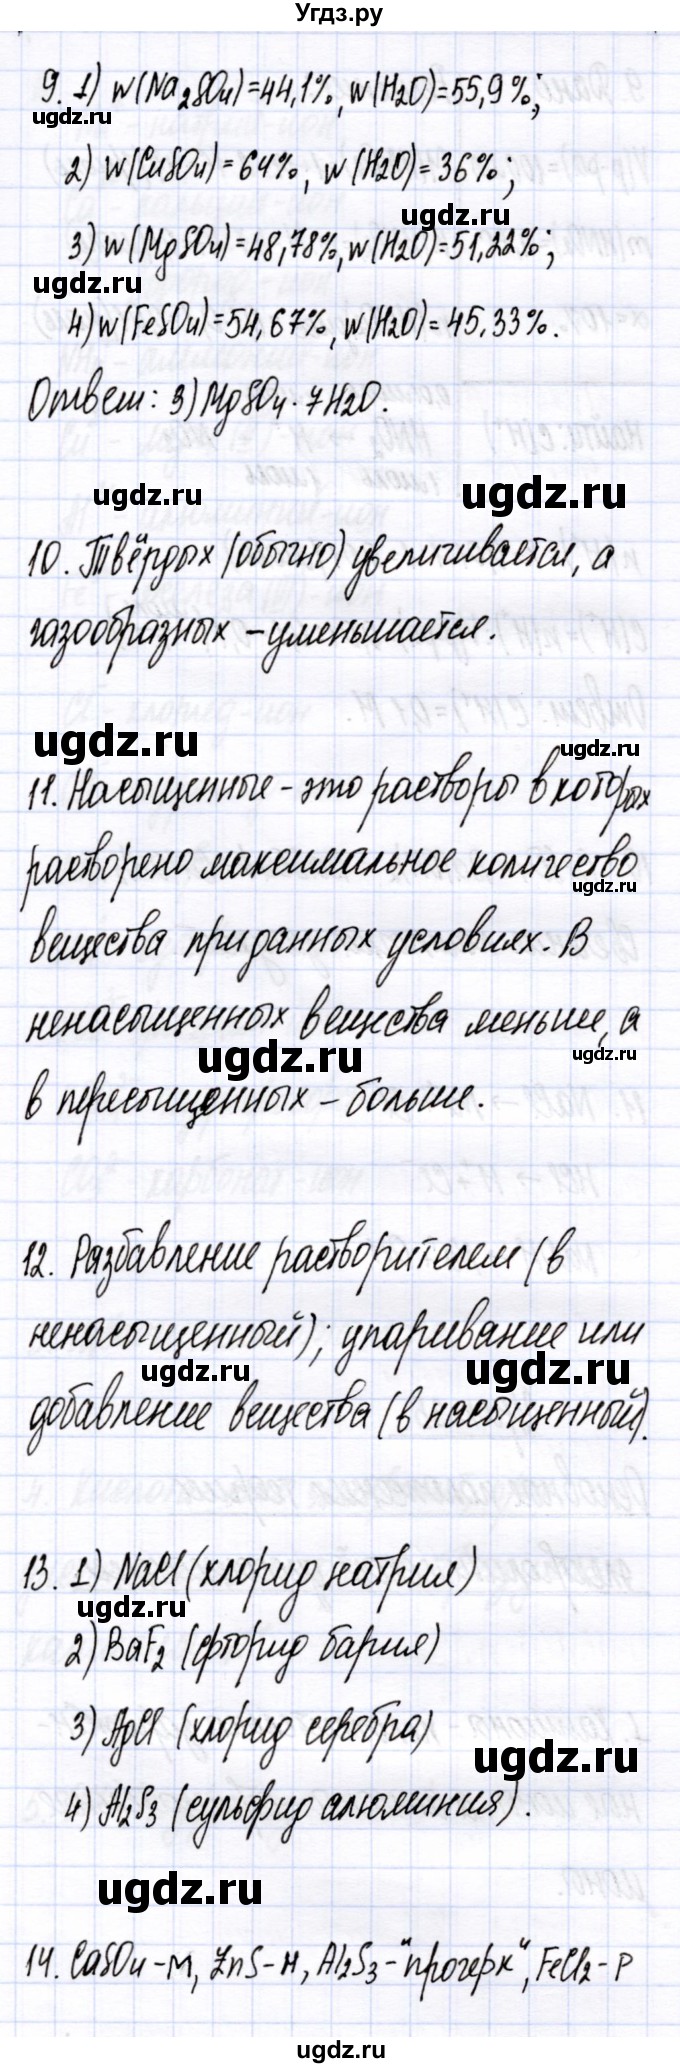 Угдз.ру
9. 1) w(Na2SO4)=44,1%, w(H2O)=55,9%;
ugdz.ru
2) w(CuSO4)=64%, w(H2O)=36%;
ugdz.ru
3) w(MgSO4)=48,78%, w(H2O)=51,22%;
ugdz.ru
4) w(FeSO4)=54,67%, w(H2O)=45,33%.
Ответ: 3) MgSO4·7H2O.
ugdz.ru
ugdz.ru
10. Твёрдых (обычно) увеличивается, а
газообразных – уменьшается.
ugdz.ru
ugdz.ru
11. Насыщенные – это растворы в которых
растворено максимальное количество
ugdz.ru
вещества при данных условиях. В
ненасыщенных вещества меньше, а
ugdz.ru
ugdz.ru
в пересыщенных – больше.
12. Разбавление растворителем (в
ненасыщенный); упаривание или
ugdz.ru
ugdz.ru
добавление вещества (в насыщенный).
13. 1) NaCl (хлорид натрия)
ugdz.ru
2) BaF2 (фторид бария)
3) AgCl (хлорид серебра)
ugdz.ru
4) Al2S3 (сульфид алюминия).
ugdz.ru
14. CaSO4 – М, ZnS – Н, Al2S3 – "прочерк", FeCl2 – Р
ugdz.ru